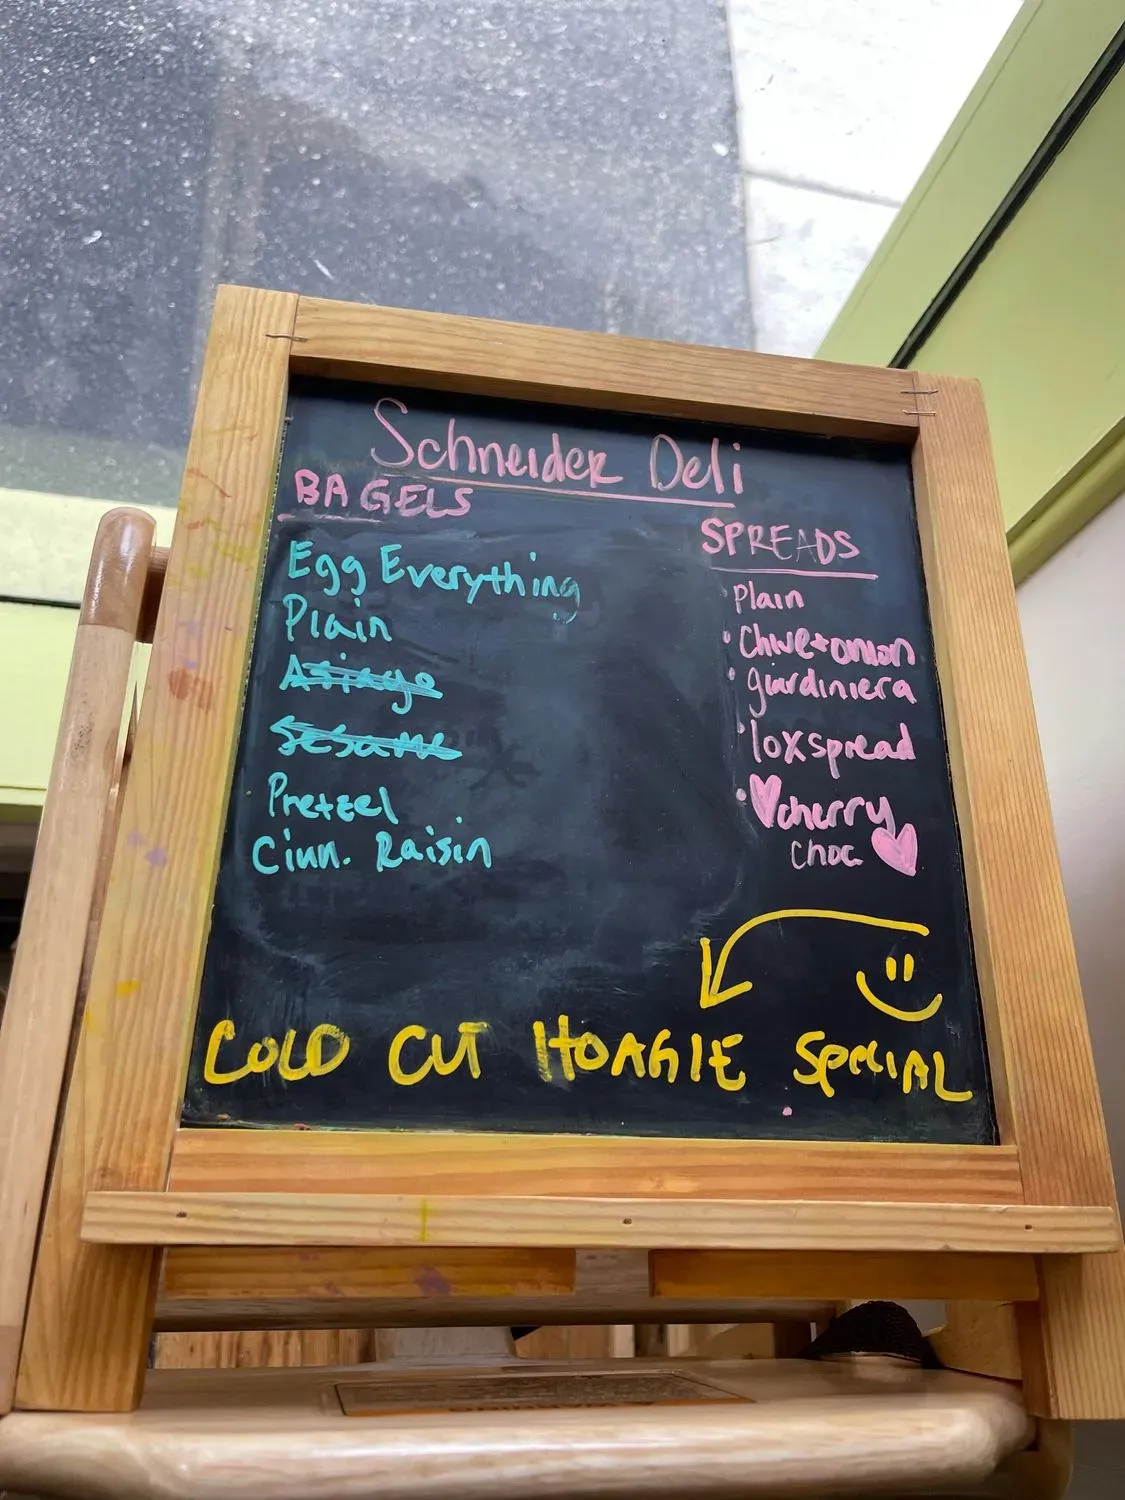 Schneider Deli
BAGELS
Egg Everything
Plain
Asiago
Sesame
Pretzel
Cinn. Raisin
SPREADS
Plain
Chive + onion
giardiniera
lox spread
cherry
choc
COLD CUT HOAGIE SPECIAL